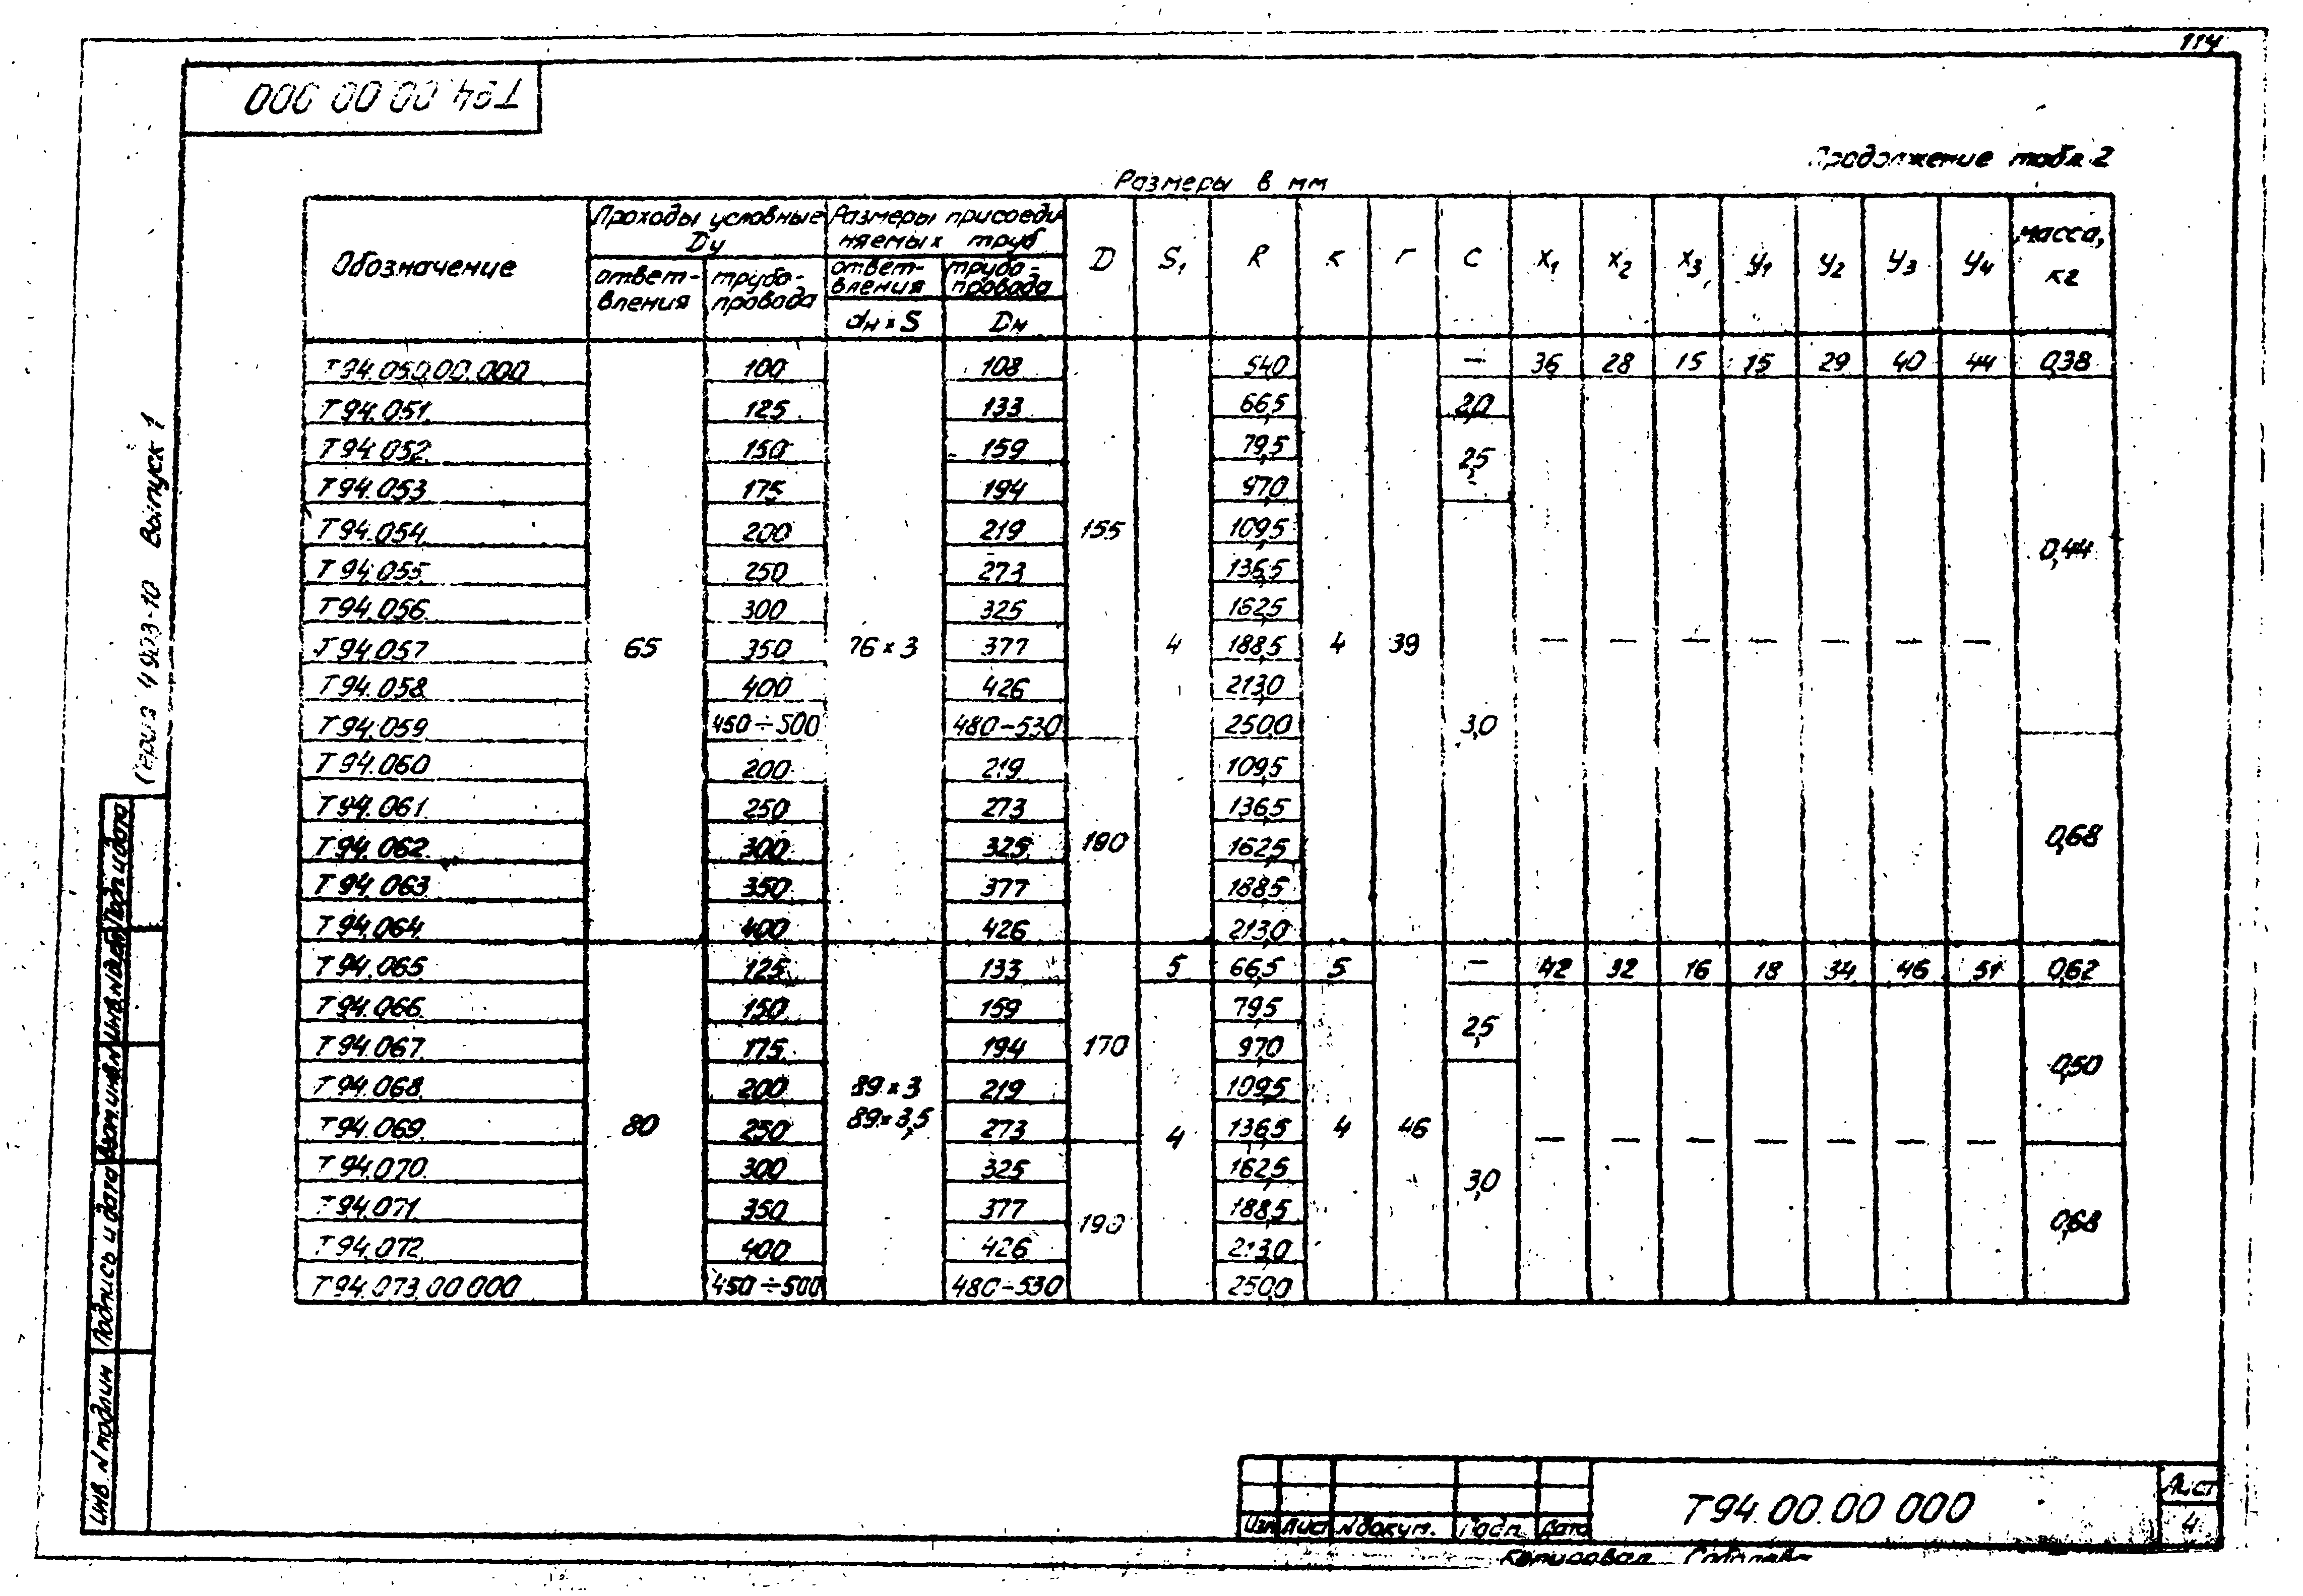 114
Т94.00.00 000
Продолжение табл. 2
Размеры в мм
Обозначение
Проходы условные Dу
ответ-вления
трубо-провода
Размеры присоединяемых труб
ответ-вления
трубо-провода
dн×S
Dн
D S1 R к г с x1 x2 x3 y1 y2 y3 y4 масса, кг
Т94.050.00.000 100 108 54,0 — 36 28 15 15 29 40 44 0,38
Т94.051 125 133 66,5 2,0
Т94.052 150 159 79,5 2,5
Т94.053 175 194 97,0
Т94.054 200 219 155 109,5 0,44
Т94.055 250 273 136,5
Т94.056 300 325 162,5
Т94.057 65 350 76×3 377 4 188,5 4 39 — — — — — — —
Т94.058 400 426 213,0
Т94.059 450÷500 480-530 250,0 3,0
Т94.060 200 219 109,5
Т94.061 250 273 136,5
Т94.062 300 325 190 162,5 0,68
Т94.063 350 377 188,5
Т94.064 400 426 213,0
Т94.065 125 133 5 66,5 5 — 42 32 16 18 34 46 51 0,62
Т94.066 150 159 79,5 2,5
Т94.067 175 194 170 97,0 0,50
Т94.068 200 89×3 219 109,5
Т94.069 80 250 89×3,5 273 4 136,5 4 46 — — — — — — —
Т94.070 300 325 162,5 3,0
Т94.071 350 377 190 188,5 0,68
Т94.072 400 426 213,0
Т94.073.00 000 450÷500 480-530 250,0
Серия 4 903-10 Выпуск 1
Подп и дата
Инв.N дубл
Взам.инв.N
Подпись и дата
Инв. N подлин
Изм Лист N докум. Подп Дата
Т94.00.00 000
Лист
4
Копировал